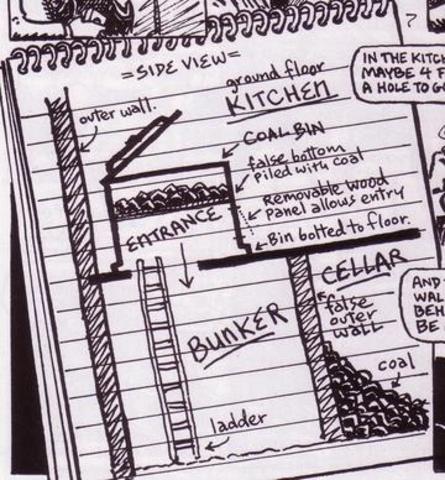 =SIDE VIEW=
?
ground floor
KITCHEN
IN THE KITCH
MAYBE 4 F
A HOLE TO G
outer wall.
COAL BIN
false bottom
piled with coal
Removable wood
Panel allows entry
Bin bolted to floor.
ENTRANCE
CELLAR
false
outer
wall
BUNKER
AND
WAL
BEH
BE
coal
ladder